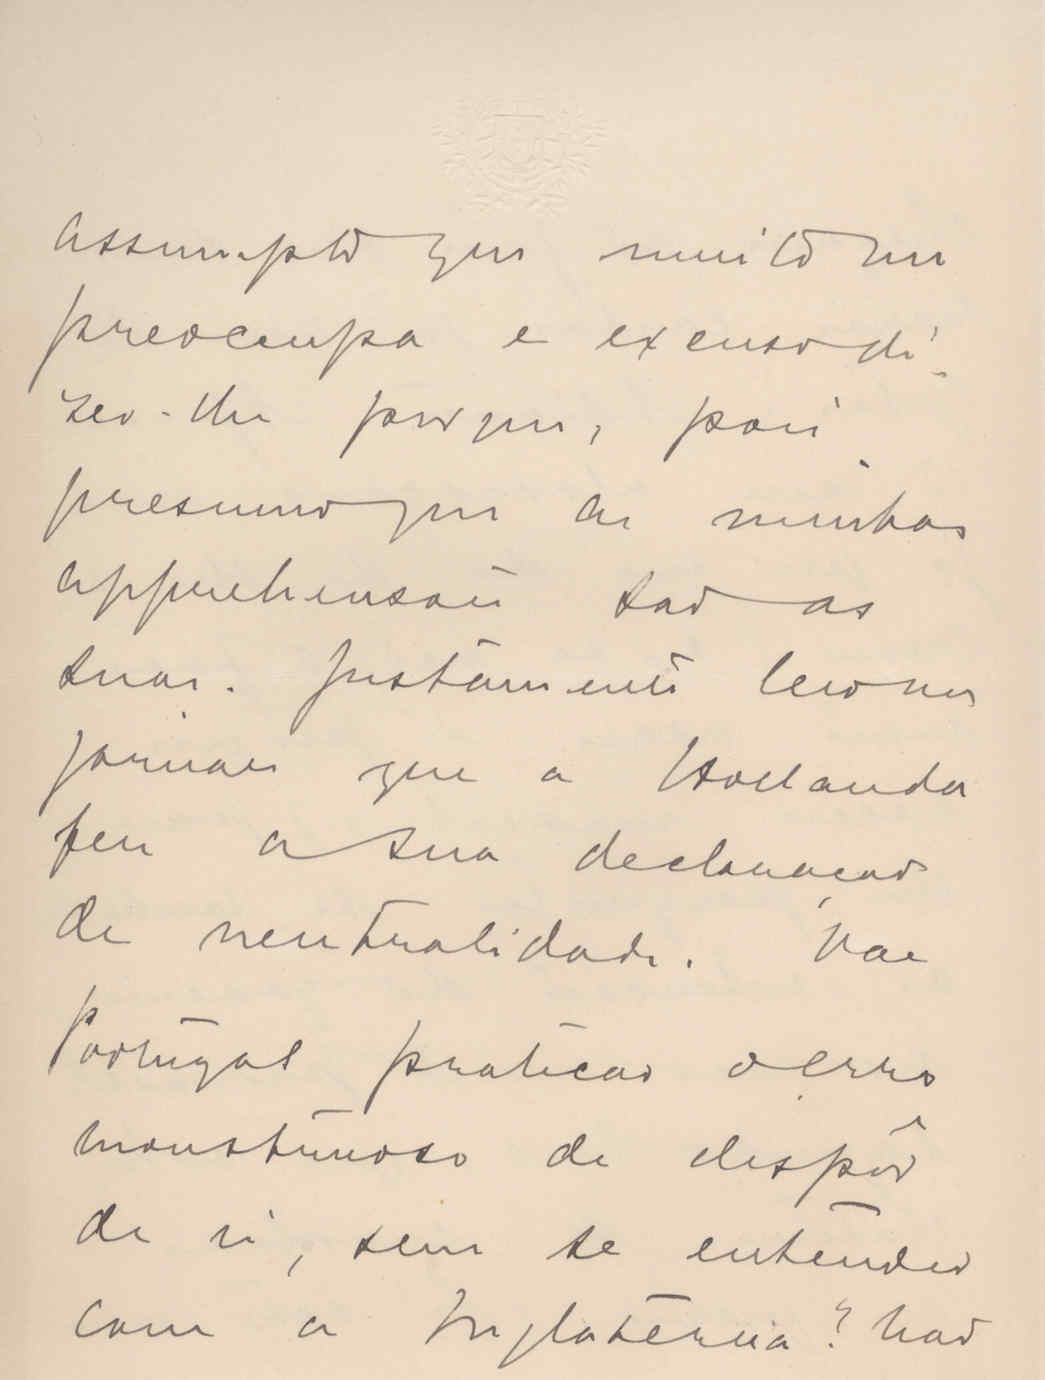 assumpto que muito me
preoccupa e excuso di-
zer-lhe porque, pois
presumo que as minhas
apprehensões são as
suas. Justamente leio nos
jornaes que a Hollanda
fez a sua declaração
de neutralidade. Vae
Portugal praticar o erro
monstruoso de dispôr
de si, sem se entender
com a Inglaterra? Não